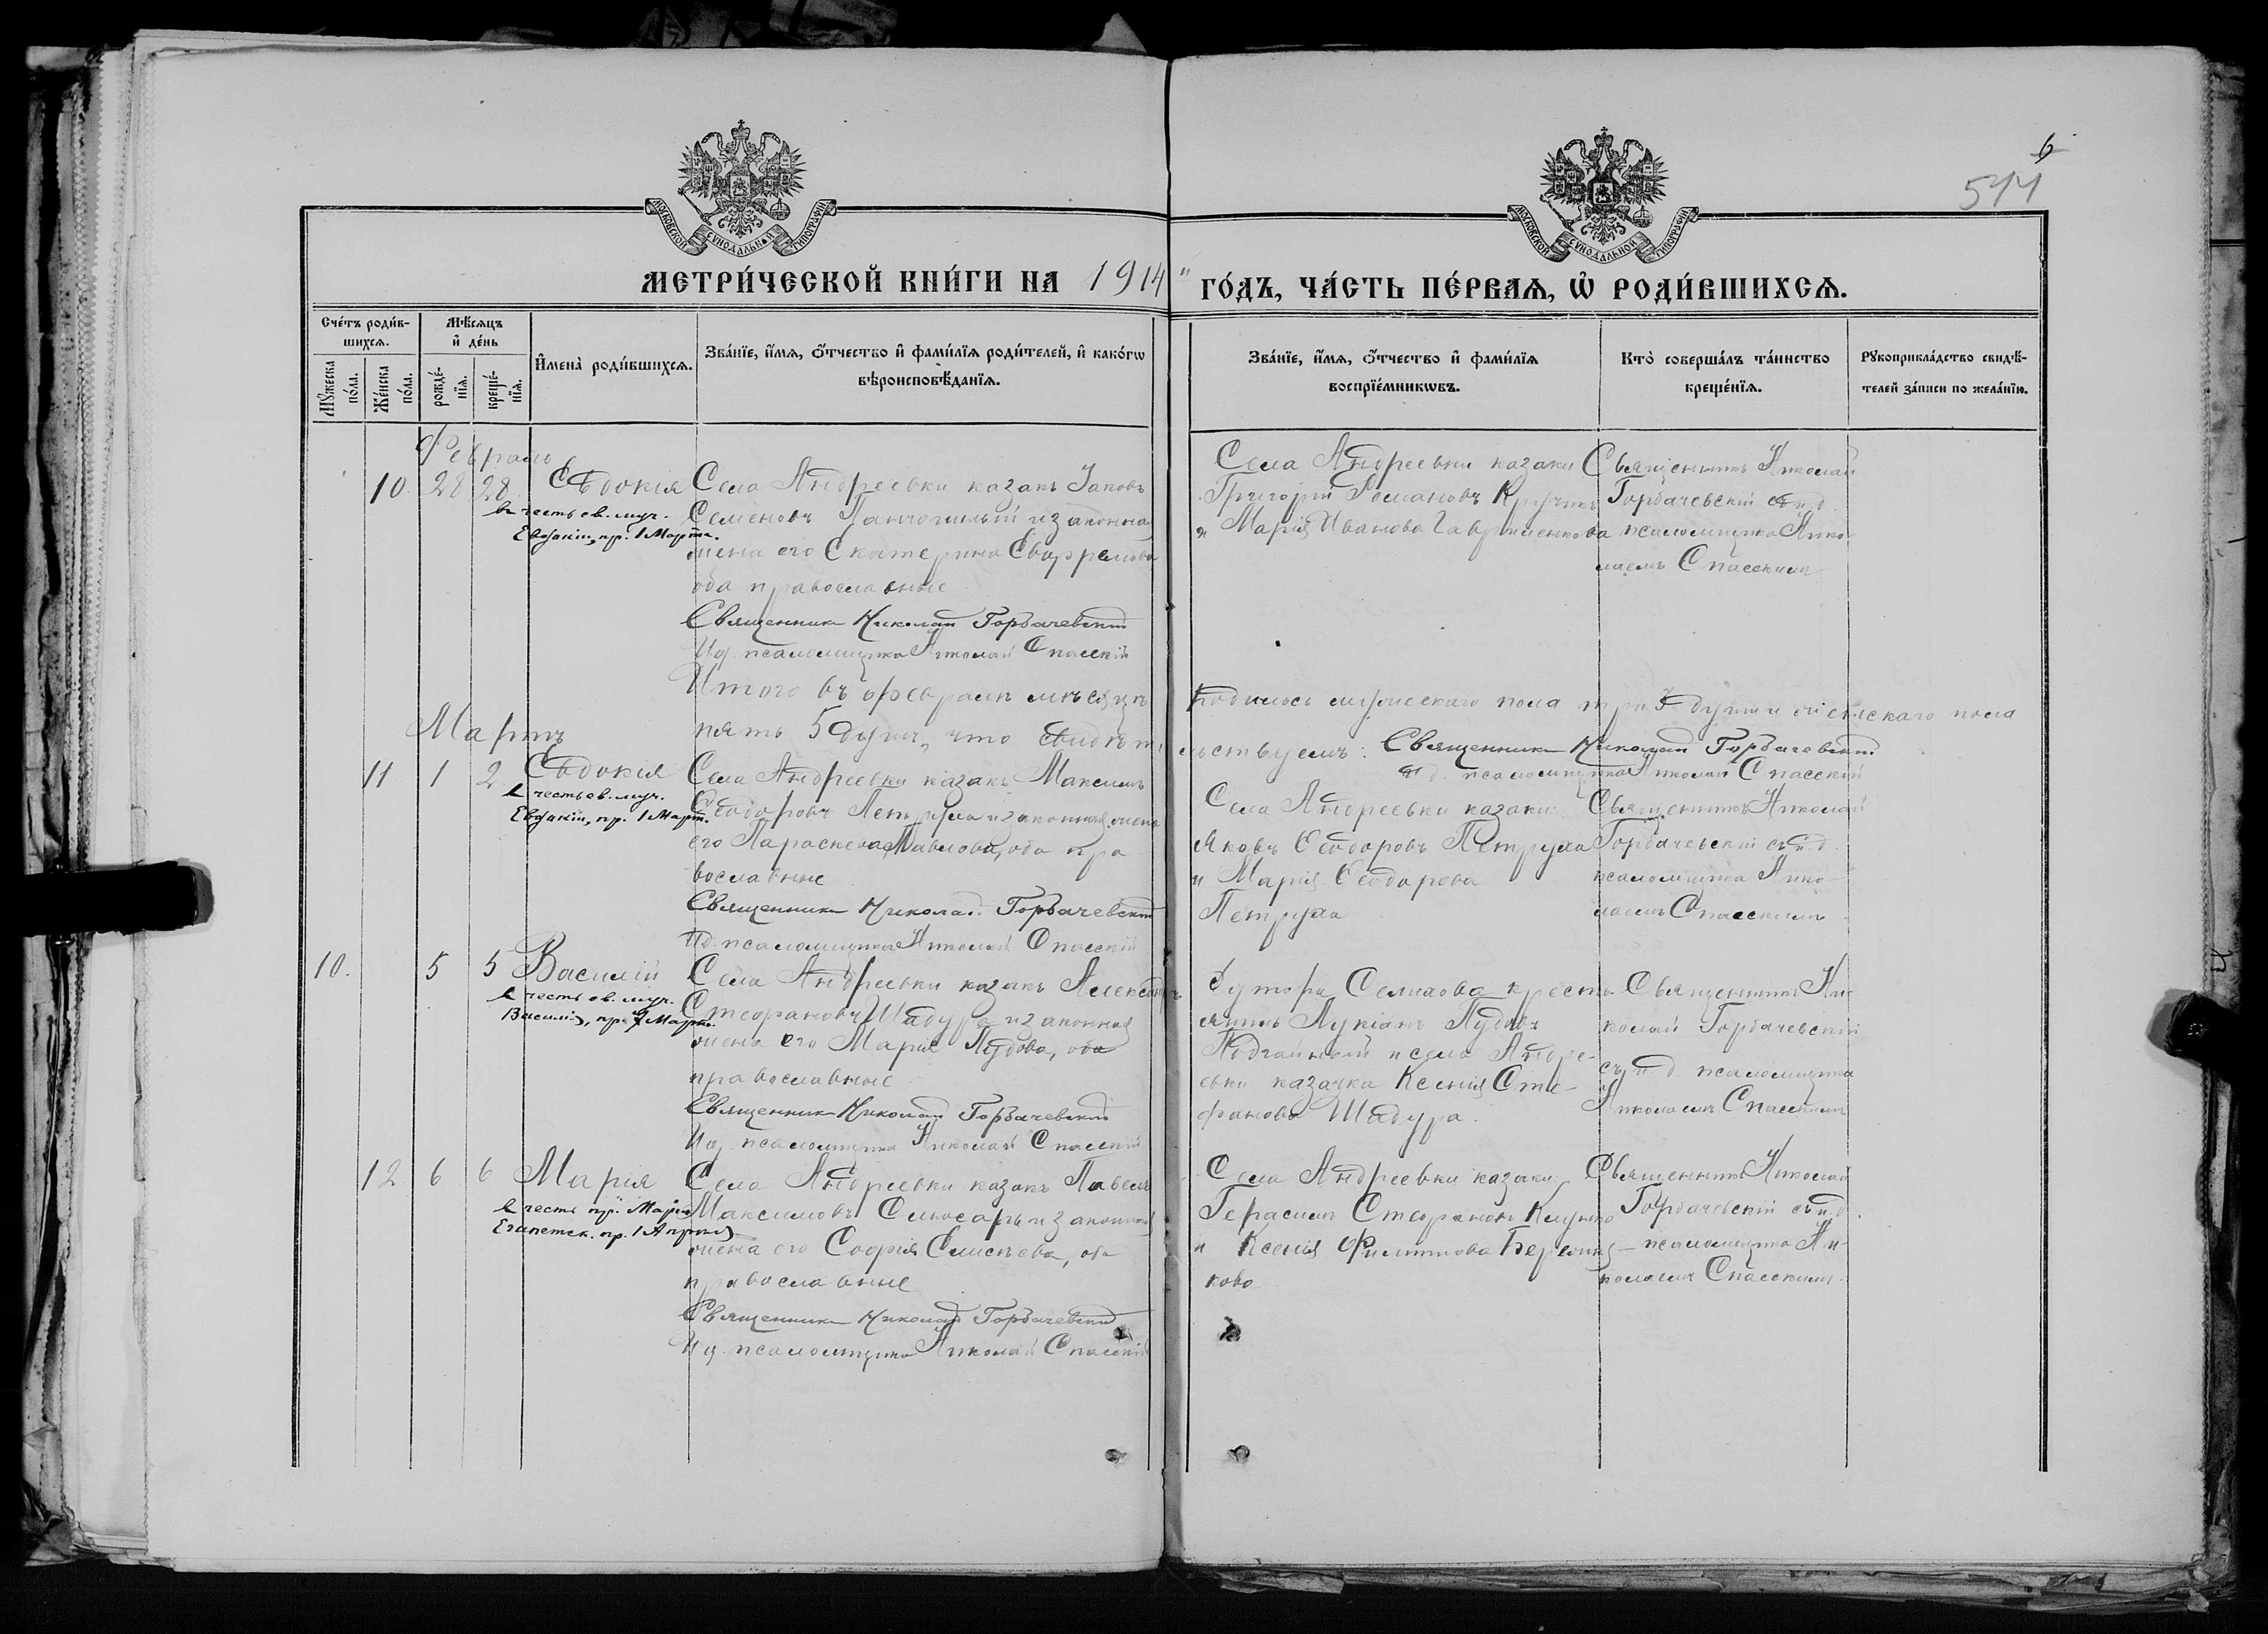 6
544
МОСКОВСКОЙ СѴНОДАЛЬНОЙ ТИПОГРАФІИ
МОСКОВСКОЙ СѴНОДАЛЬНОЙ ТИПОГРАФІИ
МЕТРИ́ЧЕСКОЙ КНИ́ГИ НА 1914
ГО́ДЪ, ЧА́СТЬ ПЕ́РВАѦ, Ѡ҆ РОДИ́ВШИХСѦ.
Сче́тъ роди́в-
шихсѧ.
Мꙋ́жеска
по́ла.
Же́нска
по́ла.
Мѣ́сѧцъ
и҆ де́нь
рожде́-
нїѧ.
креще́-
нїѧ.
И҆мена̀ роди́вшихсѧ.
Зва́нїе, и҆́мѧ, ѻ҆́тчество и҆ фами́лїѧ роди́телей, и҆ како́гѡ
вѣроисповѣ́данїѧ.
Зва́нїе, и҆́мѧ, ѻ҆́тчество и҆ фами́лїѧ
воспрїе́мникѡвъ.
Кто̀ соверша́лъ та́инство
креще́нїѧ.
Рꙋкоприкла́дство свидѣ́-
телей за́писи по жела́нїю.
Февраль
10. 28 28 Евдокія
въ честь св. муч.
Евдокіи, пр. 1 Марта.
Села Андреевки казакъ Іаковъ
Семеновъ и законная
жена его Екатерина
оба православные
Священникъ Николай Горбачевскій
Ид. псаломщика Николай Спасскій
Села Андреевки казаки
Григорій Романовъ
и Марія Иванова Гавриленкова
Священникъ Николай
Горбачевскій съ и.д.
псаломщика Нико-
лаемъ Спасскимъ
Итого въ Февралѣ мѣсяцѣ
родилось мужескаго пола три 3 души и женскаго пола
пять 5 душъ, что свидѣт
ельствуемъ: Священникъ Николай Горбачевскій
и.д. псаломщика Николай Спасскій
Мартъ
11 1 2 Евдокія
въ честь св. муч.
Евдокіи, пр. 1 Март.
Села Андреевки казакъ Максимъ
Ѳеодоровъ Петруха и законная жена
его Параскева Павлова, оба пра
вославные
Священникъ Николай Горбачевскій
Ид. псаломщика Николай Спасскій
Села Андреевки казаки
Яковъ Ѳеодоровъ Петруха
и Марія Ѳеодорова
Петруха
Священникъ Николай
Горбачевскій съ и.д.
псаломщика Нико-
лаемъ Спасскимъ
10. 5 5 Василій
въ честь св. муч.
Василія, пр. 7 Март.
Села Андреевки казакъ Александръ
Стефановъ Шадура и законная
жена его Марія Іудова, оба
православные
Священникъ Николай Горбачевскій
Ид. псаломщика Николай Спасскій
Хутора Селихова кресть-
янинъ Лукіанъ Іудовъ
и села Андре-
евки казачка Ксенія Сте-
фанова Шадура.
Священникъ Ни-
колай Горбачевскій
съ и.д. псаломщика
Николаемъ Спасскимъ
12 6 6 Марія
въ честь пр. Маріи
Египетск. пр. 1 Апрѣля
Села Андреевки казакъ Павелъ
Максимовъ Слюсарь и законная
жена его Софія Елисѣева, оба
православные
Священникъ Николай Горбачевскій
Ид. псаломщика Николай Спасскій
Села Андреевки казаки
Герасимъ Стефановъ
и Ксенія Филиппова
кова
Священникъ Николай
Горбачевскій съ и.д.
псаломщика Ни-
колаемъ Спасскимъ.